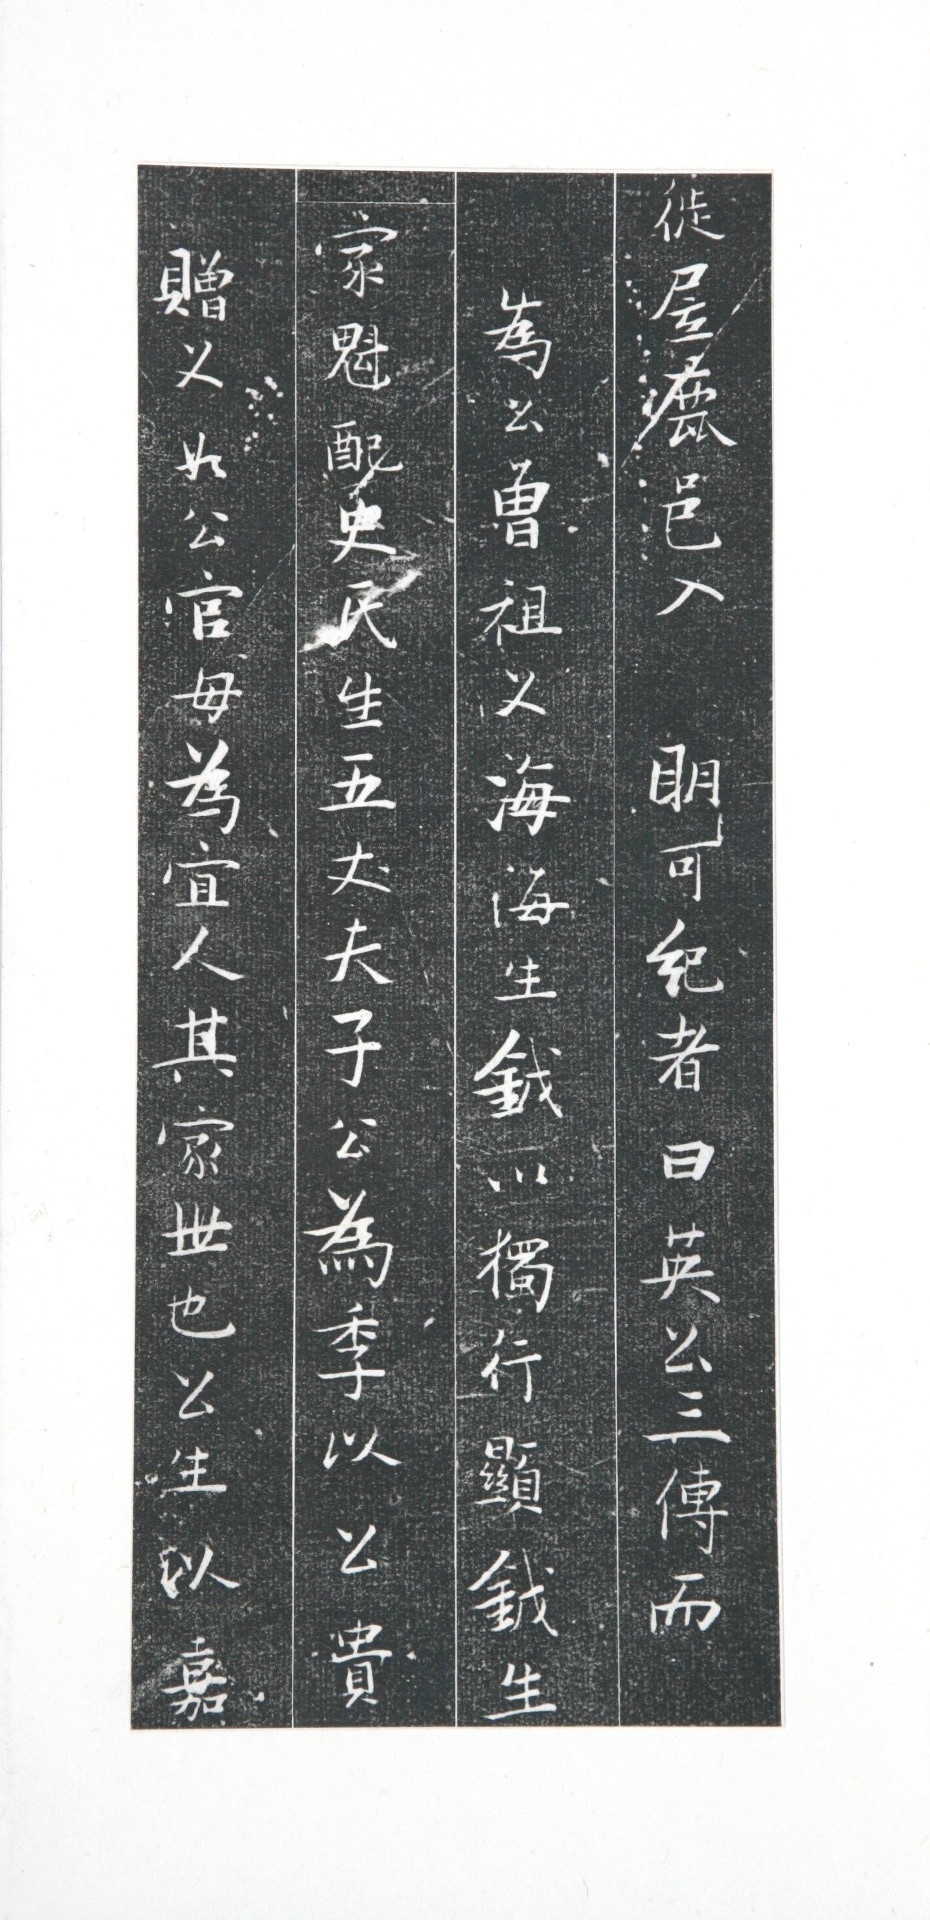 徙居麻邑入明可紀者曰英公三傳而
為公曾祖父海海生鉞以獨行顯鉞生
家魁配史氏生五丈夫子公為季以公貴
贈父如公官母為宜人其家世也公生以嘉